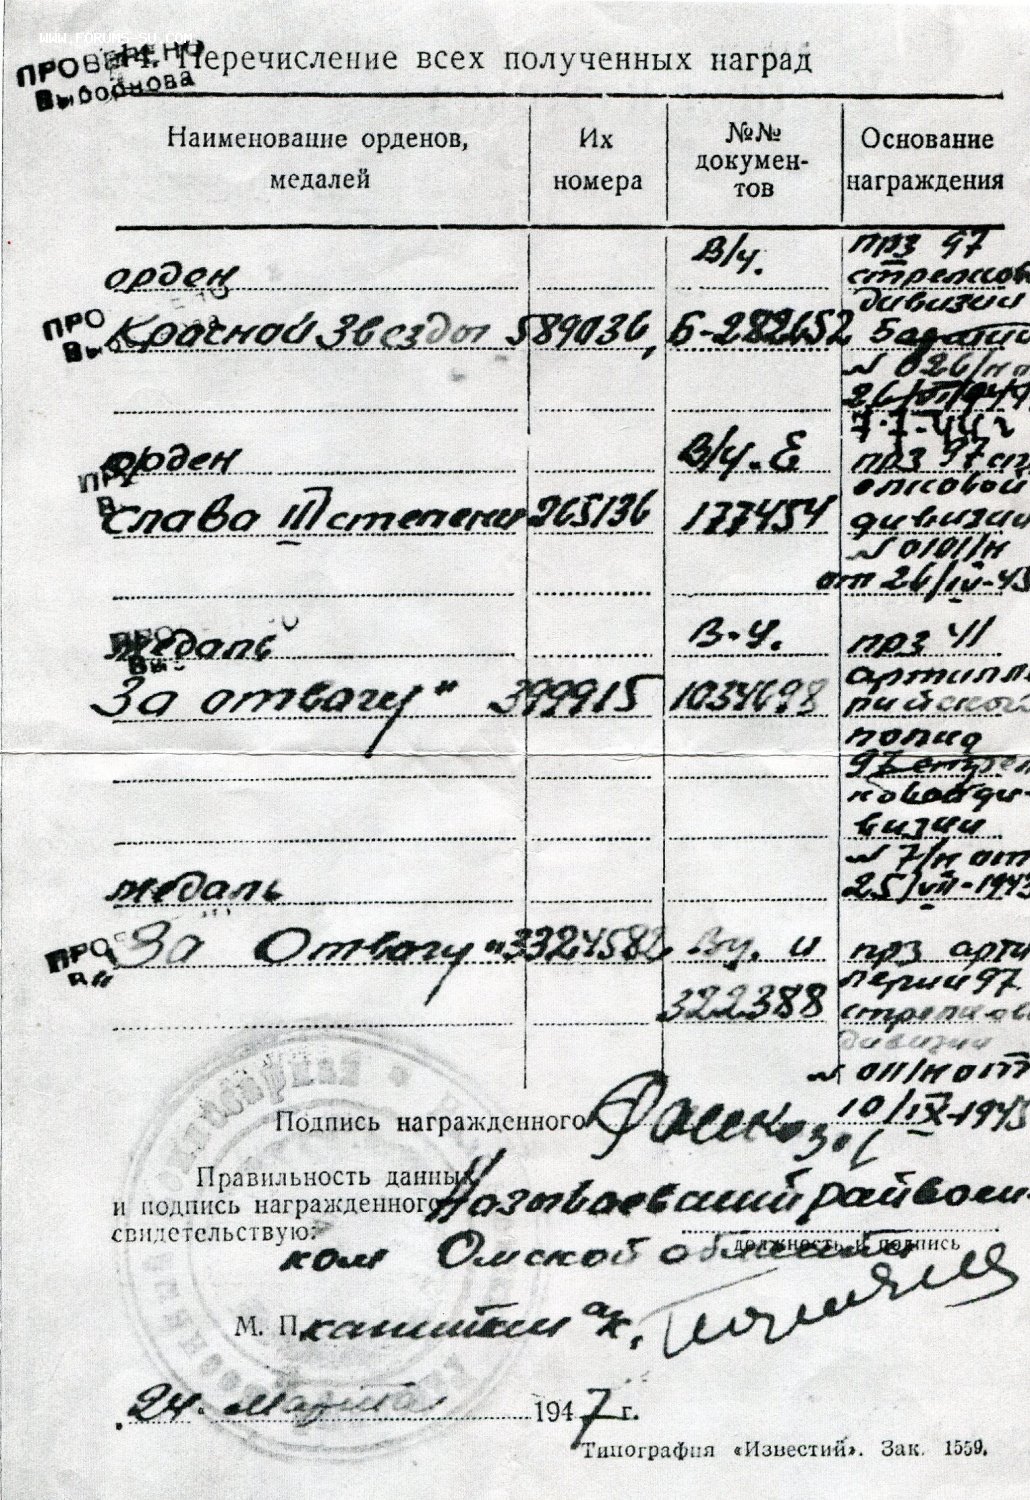 WWW.FORUMS-SU.COM
ПРОВЕРЕНО
Выборнова
14. Перечисление всех полученных наград
Наименование орденов, медалей
Их номера
№№ докумен-
тов
Основание награждения
орден
Красной Звезды 589036, В/ч. Б-282652
прз 97
стрелков
дивизии
№ 026/н о
7-I-44 г
орден
Слава III степени 265136 В/ч. Е 177454
прз 97 ст
елковой
дивизии
№ 0101/н
от 26/IV-45
медаль
За отвагу" 399915 В-ч. 1034698
прз 41
артилле
рийского
полка
97 стрел
ковой ди-
визии
№ 7/н от
25/VII-1943
медаль
За Отвагу" 3324582 Вч. и 322388
прз арти
лерии 97
стрелков
дивизии
№ 011/н от
10/IX-1945
Подпись награжденного
Правильность данных
и подпись награжденного
свидетельствую:
Называевский райвоен-
ком Омской области
должность и подпись
М. П.
капитан а/к.
24. Марта 1947 г.
Типография «Известий». Зак. 1559.